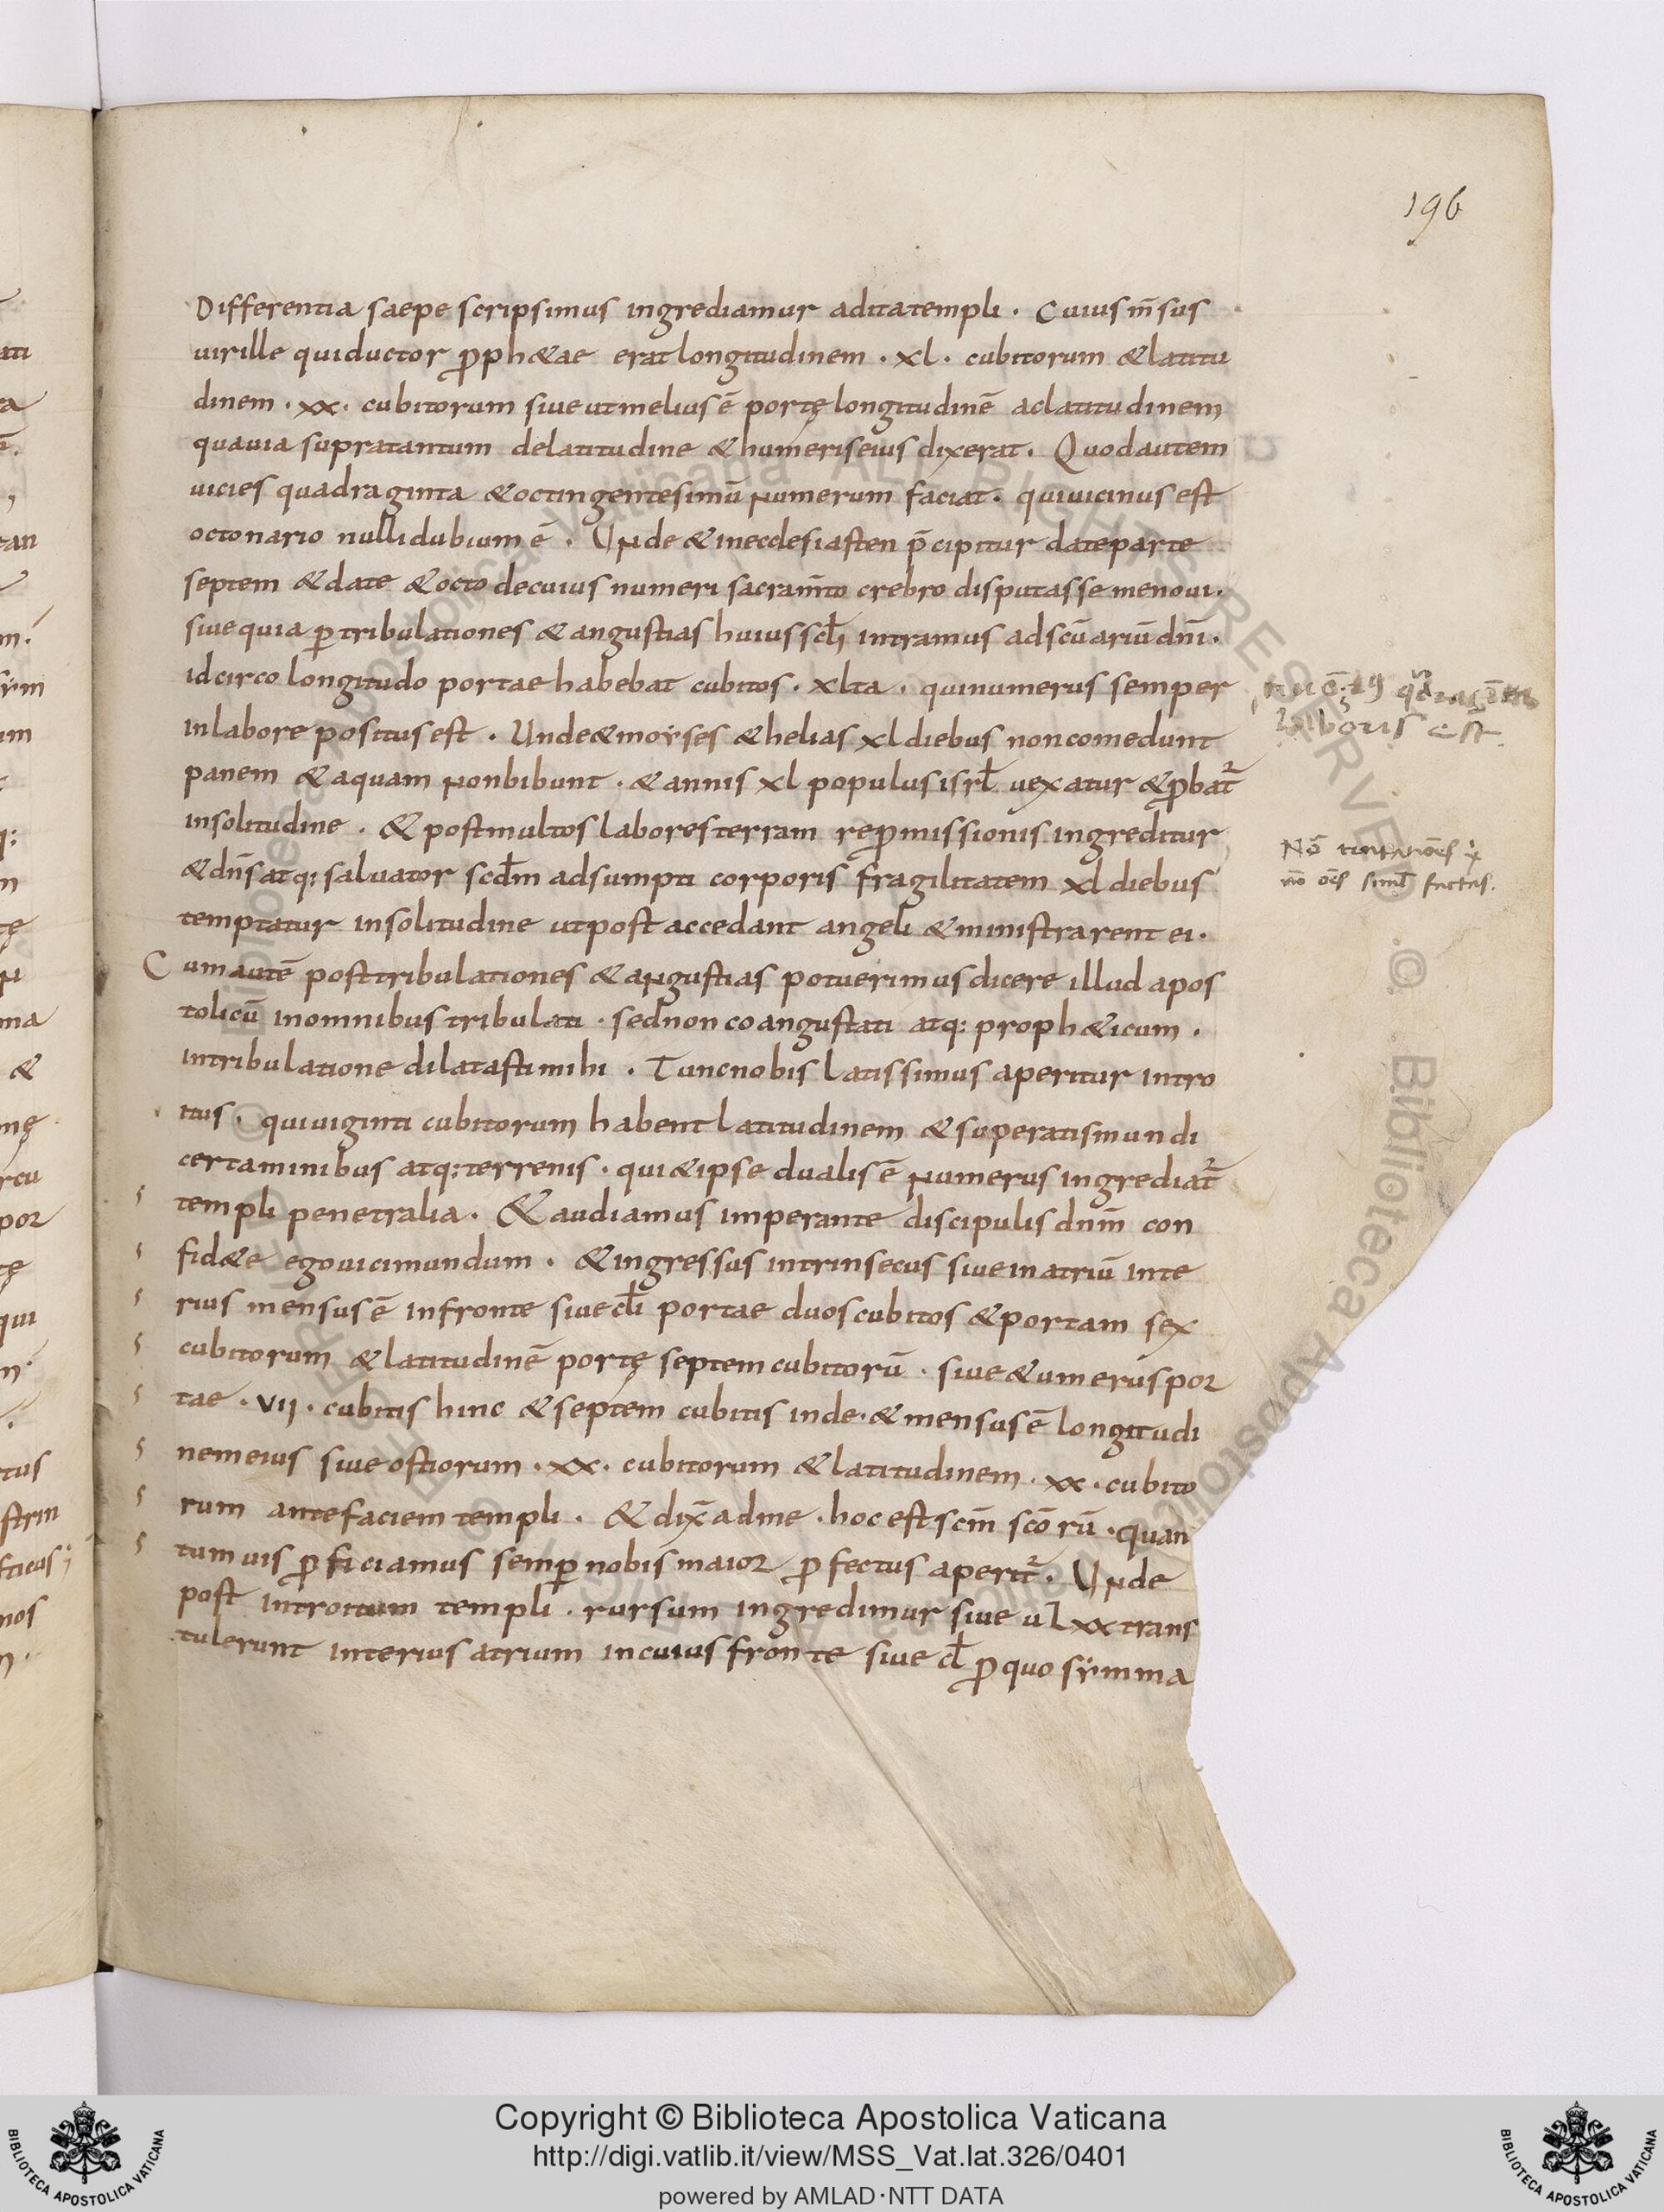 196
Differentia saepe scripsimus ingrediamur aditatempli . Cuius m̄sus
uirille quiductor ꝓph&ae erat longitudinem . xl . cubitorum & latitu
dinem . xx . cubitorum siue utmelius ē portę longitudinē aclatitudinem
quauia supratantum delatitudine & humeriseius dixerat . Quodautem
uicies quadraginta & octingentesimū numerum faciat . quiuicinus est
octonario nullidubium ē . Unde & inecclesiasten p̄cipitur dateparte
septem & date & octo decuius numeri sacram̄to crebro disputasse menoui .
siuequia ꝑ tribulationes & angustias huius sc̄li intramus ads̄cuariū dn̄i .
idcirco longitudo portae habebat cubitos . xlta . quinumerus semper
inlabore positus est . Unde & moẏses & helias xl diebus noncomedunt
panem & aquam nonbibunt . & annis xl populus isrl̄ uexatur & ꝓbat᷑
insolitudine . & postmultos labores terram reꝓmissionis ingreditur
& dn̄s atq: saluator scd̄m adsumpti corporis fragilitatem xl diebus
temptatur insolitudine utpost accedant angeli & ministrarent ei .
Cumautē posttribulationes & angustias potuerimus dicere illud apos
tolicū inomnibus tribulati . sednon coangustati atq: proph&icum .
intribulatione dilatastimihi . Tuncnobis latissimus aperitur intro
itus . quiuiginti cubitorum habent latitudinem & superatismundi
certaminibus atq: terrenis . qui & ipse dualis ē numerus ingrediat᷑
templi penetralia . & audiamus imperante discipulis dnm̄ con
fid&e egouicimundum . & ingressus intrinsecus siueinatriū inte
rius mensus ē infronte siue el̄i portae duoscubitos & portam sex
cubitorum & latitudinē portę septemcubitorū . siue & umerus por
tae . vij . cubitis hinc & septem cubitis inde . & mensus ē longitudi
nemeius siue ostiorum . xx . cubitorum & latitudinem . xx . cubito
rum antefaciem templi . & dix̄ adme . hoc est scm̄ scōrū . quan
tumuis ꝓficiamus semꝑ nobis maior ꝓfectus aperit᷑ . Unde
post introitum templi . rursum ingredimur siue ul xx trans
tulerunt interius atrium incuius fronte siue el̄ ꝓquo sẏmma
laboris est
Copyright © Biblioteca Apostolica Vaticana
http://digi.vatlib.it/view/MSS_Vat.lat.326/0401
powered by AMLAD·NTT DATA
BIBLIOTECA APOSTOLICA VATICANA
BIBLIOTECA APOSTOLICA VATICANA